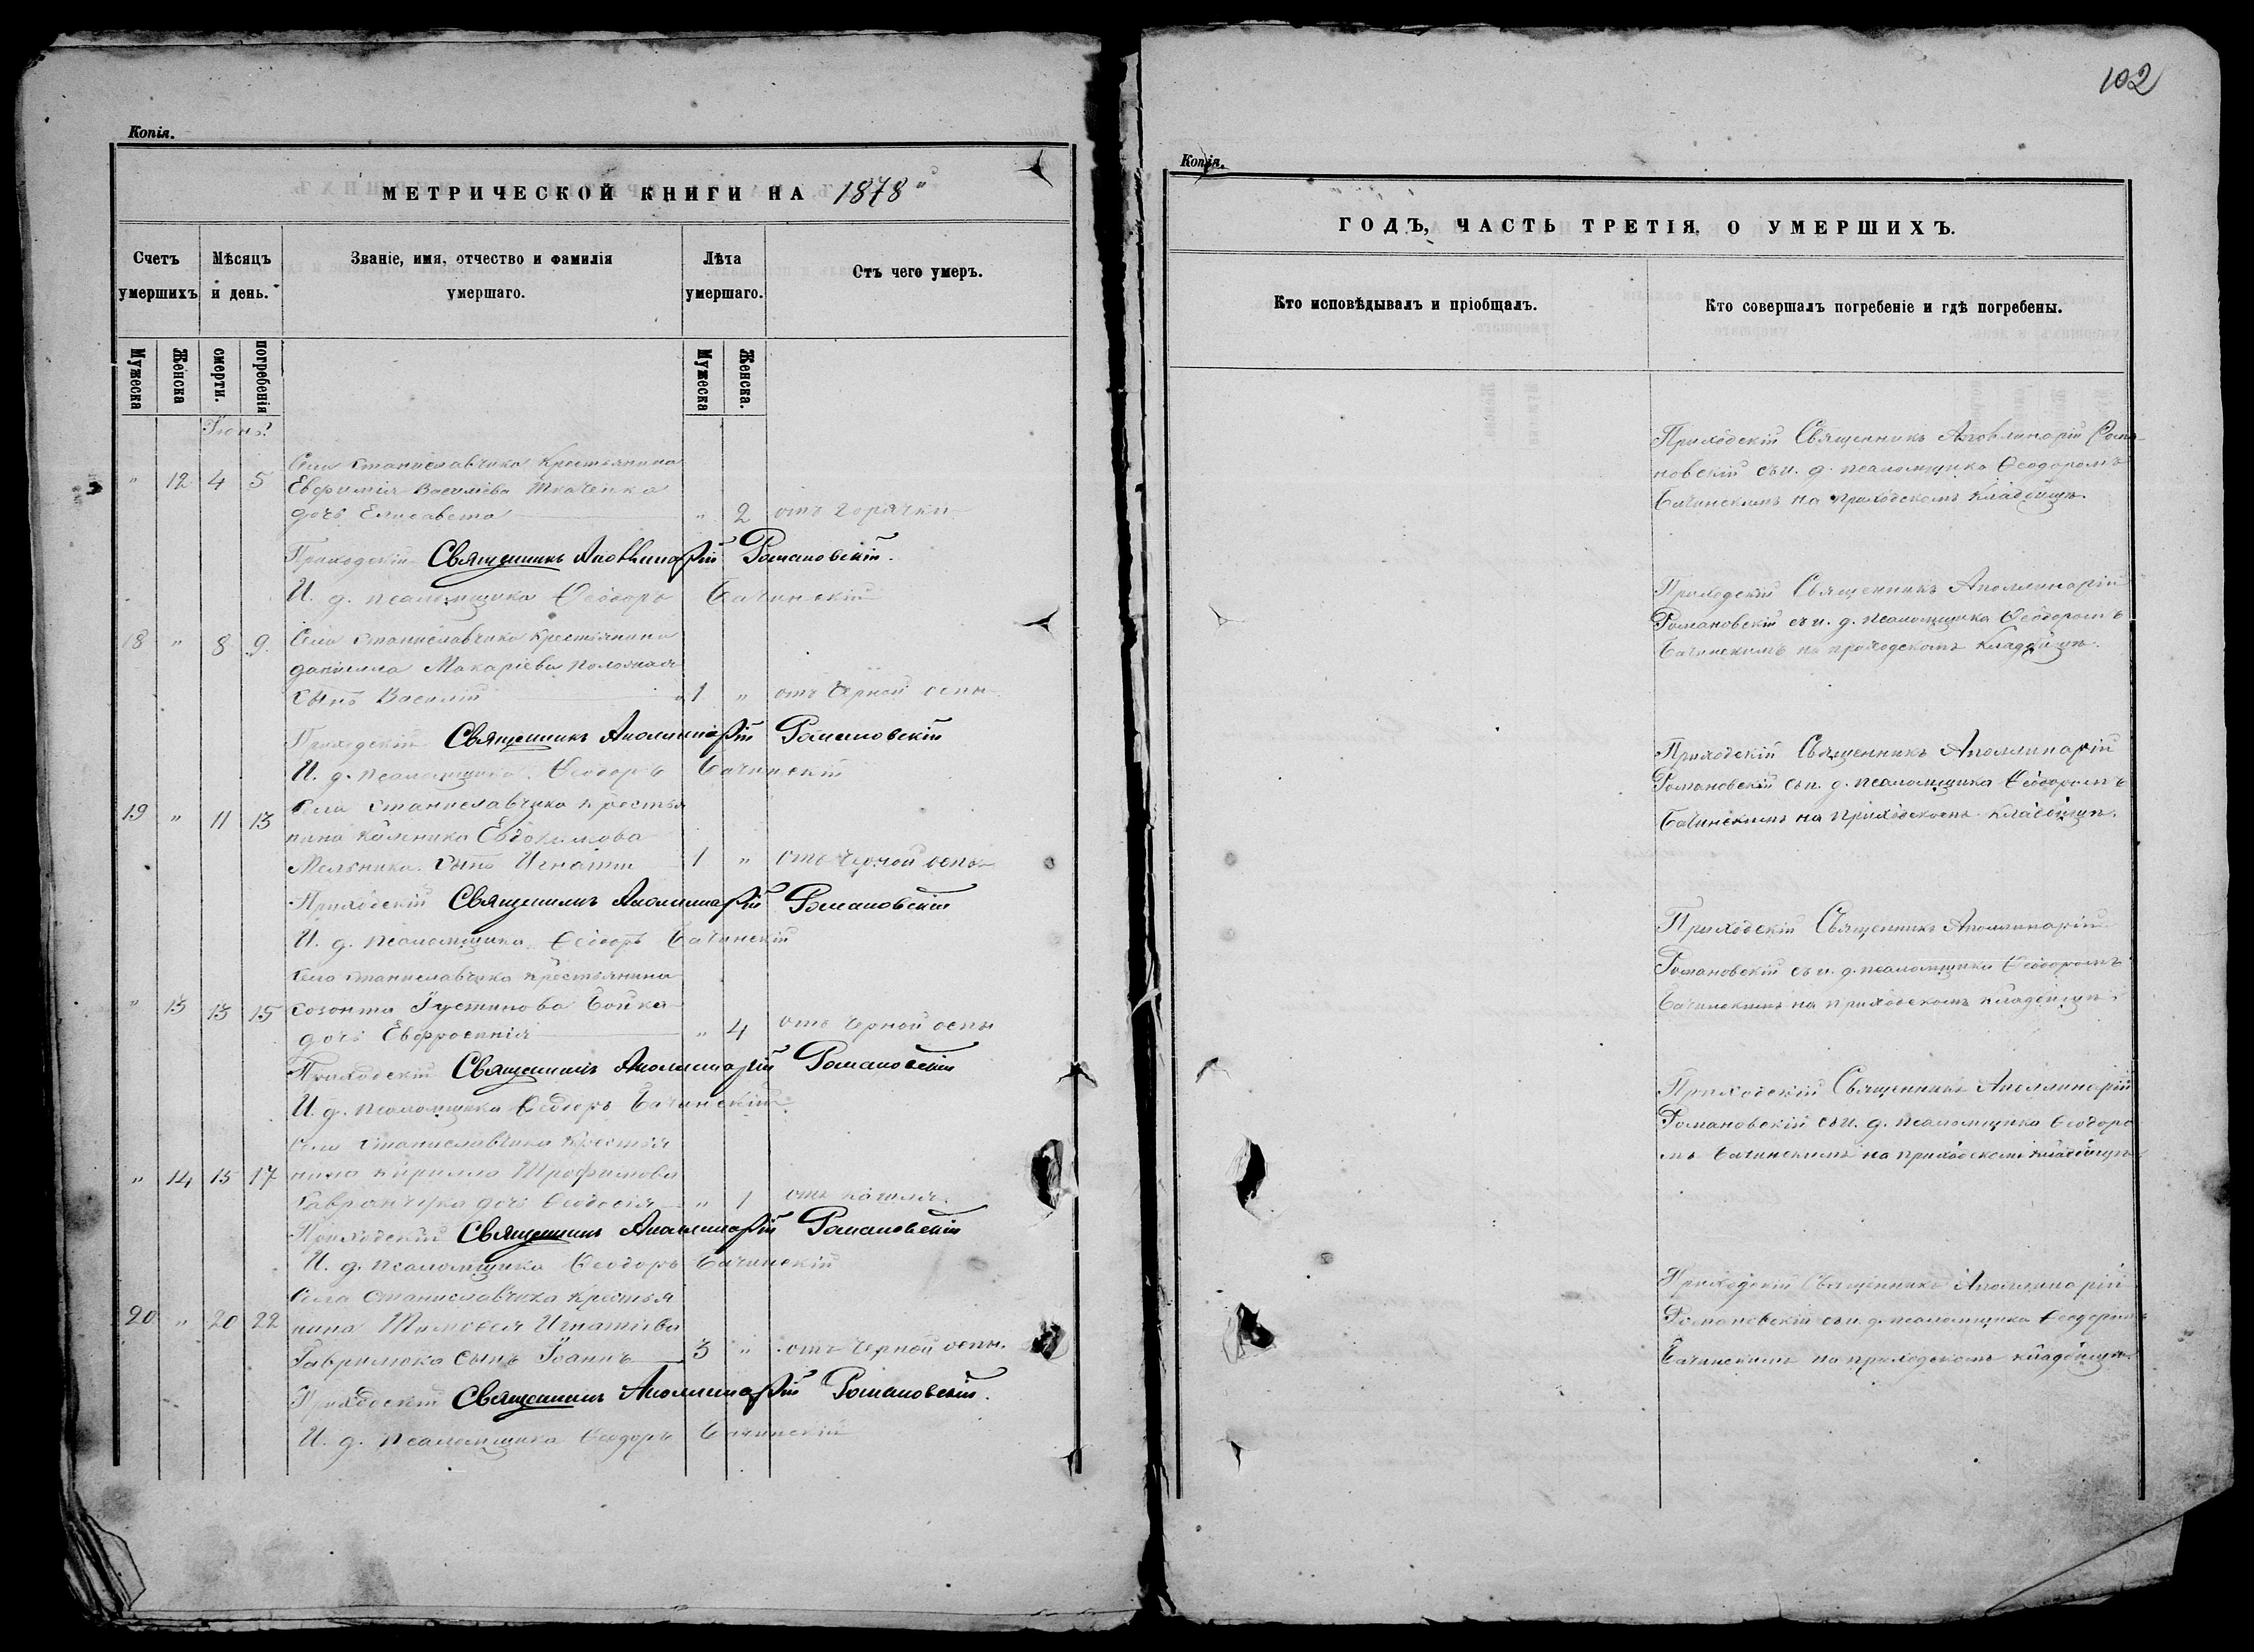 102
Копія.
МЕТРИЧЕСКОЙ КНИГИ НА 1878
Счетъ умершихъ
Мѣсяцъ и день.
Званіе, имя, отчество и фамилія умершаго.
Лѣта умершаго.
Отъ чего умеръ.
Мужеска
Женска
смерти.
погребенія
Мужеска
Женска.
Іюнь
Села Станиславчика крестьянина
" 12 4 5 Евфимія Василіева Ткаченка
дочь Елисавета " 2 отъ горячки
Приходскій Священникъ Аполлинарій Романовскій.
И. д. псаломщика Ѳеодоръ Бачинскій
18 " 8 9 Села Станиславчика крестьянина
даніила Макаріева
сынъ Василій 1 " отъ черной оспы
Приходскій Священникъ Аполлинарій Романовскій
И. д. псаломщика Ѳеодоръ Бачинскій
19 " 11 13 Села Станиславчика крестья
нина Каленика Евдокимова
Мельника сынъ Игнатій 1 " отъ черной оспы
Приходскій Священникъ Аполлинарій Романовскій
И. д. псаломщика Ѳеодоръ Бачинскій
Села Станиславчика крестьянина
" 13 13 15 Созонта Іустинова Бойка
дочь Евфросинія " 4 отъ черной оспы
Приходскій Священникъ Аполлинарій Романовскій
И. д. псаломщика Ѳеодоръ Бачинскій
Села Станиславчика крестья
" 14 15 17 нина Кирилла Трофимова
дочь Ѳеодосія " 1 отъ кашля.
Приходскій Священникъ Аполлинарій Романовскій
И. д. псаломщика Ѳеодоръ Бачинскій
Села Станиславчика крестья
20 " 20 22 нина Тимоѳея Игнатіева
Гаврилюка сынъ Іоаннъ 3 " отъ черной оспы.
Приходскій Священникъ Аполлинарій Романовскій.
И. д. псаломщика Ѳеодоръ Бачинскій
Копія.
ГОДЪ, ЧАСТЬ ТРЕТІЯ, О УМЕРШИХЪ.
Кто исповѣдывалъ и пріобщалъ.
Кто совершалъ погребеніе и гдѣ погребены.
Приходскій Священникъ Аполлинарій Рома-
новскій съ и. д. псаломщика Ѳеодоромъ
Бачинскимъ на приходскомъ кладбищѣ.
Приходскій Священникъ Аполлинарій
Романовскій съ и. д. псаломщика Ѳеодоромъ
Бачинскимъ на приходскомъ кладбищѣ.
Приходскій Священникъ Аполлинарій
Романовскій съ и. д. псаломщика Ѳеодоромъ
Бачинскимъ на приходскомъ кладбищѣ.
Приходскій Священникъ Аполлинарій
Романовскій съ и. д. псаломщика Ѳеодоромъ
Бачинскимъ на приходскомъ кладбищѣ.
Приходскій Священникъ Аполлинарій
Романовскій съ и. д. псаломщика Ѳеодоро
мъ Бачинскимъ на приходскомъ кладбищѣ
Приходскій Священникъ Аполлинарій
Романовскій съ и. д. псаломщика Ѳеодоромъ
Бачинскимъ на приходскомъ кладбищѣ.